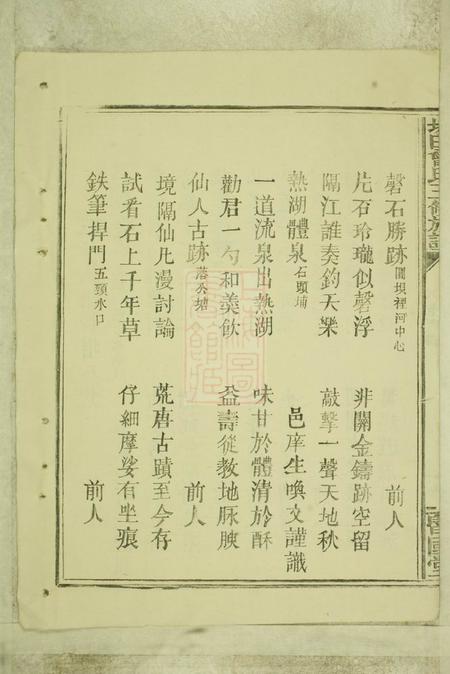 磬石勝跡 圍垻裡河中心 前人
片石玲瓏似磬浮 非關金鑄跡空留
隔江誰奏鈞天樂 敲擊一聲天地秋
熱湖醴泉 石頭埔 邑庠生喚文謹識
一道流泉出熱湖 味甘於醴清於酥
勸君一勺和羹飲 益壽從教地脉腴
仙人古跡 落公塘 前人
境隔仙凡漫討論 荒唐古蹟至今存
試看石上千年草 仔細摩娑有坐痕
鉄筆捍門 五頸水口 前人